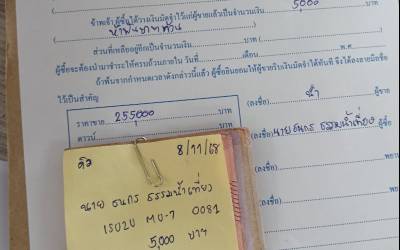 ข้าพเจ้า ผู้ซื้อได้วางเงินมัดจำไว้แก่ผู้ขายแล้วเป็นจำนวนเงิน 5,000
ห้าพันบาทถ้วน
ส่วนที่เหลืออยู่อีกเป็นจำนวนเงิน บาท
ผู้ซื้อจะต้องนำมาชำระให้ครบถ้วนภายใน วันที่ เดือน พ.ศ.
ถ้าพ้นจากกำหนดเวลาดังกล่าวนี้แล้ว ผู้ซื้อยินยอมให้ผู้ขายริบเงินมัดจำได้ทันที จึงได้ลงลายมือชื่อ
ไว้เป็นสำคัญ
ราคาขาย 255,000 บาท
ดาวน์ บาท
(ลงชื่อ) น้ำ ผู้ขาย
(ลงชื่อ) นายธนกร ธรรมน้ำเที่ยง ผู้ซื้อ
(ลงชื่อ)
(ลงชื่อ)
8/11/68
นาย ธนกร ธรรมน้ำเที่ยง
ISUZU MU-7 0081
5,000 บาท